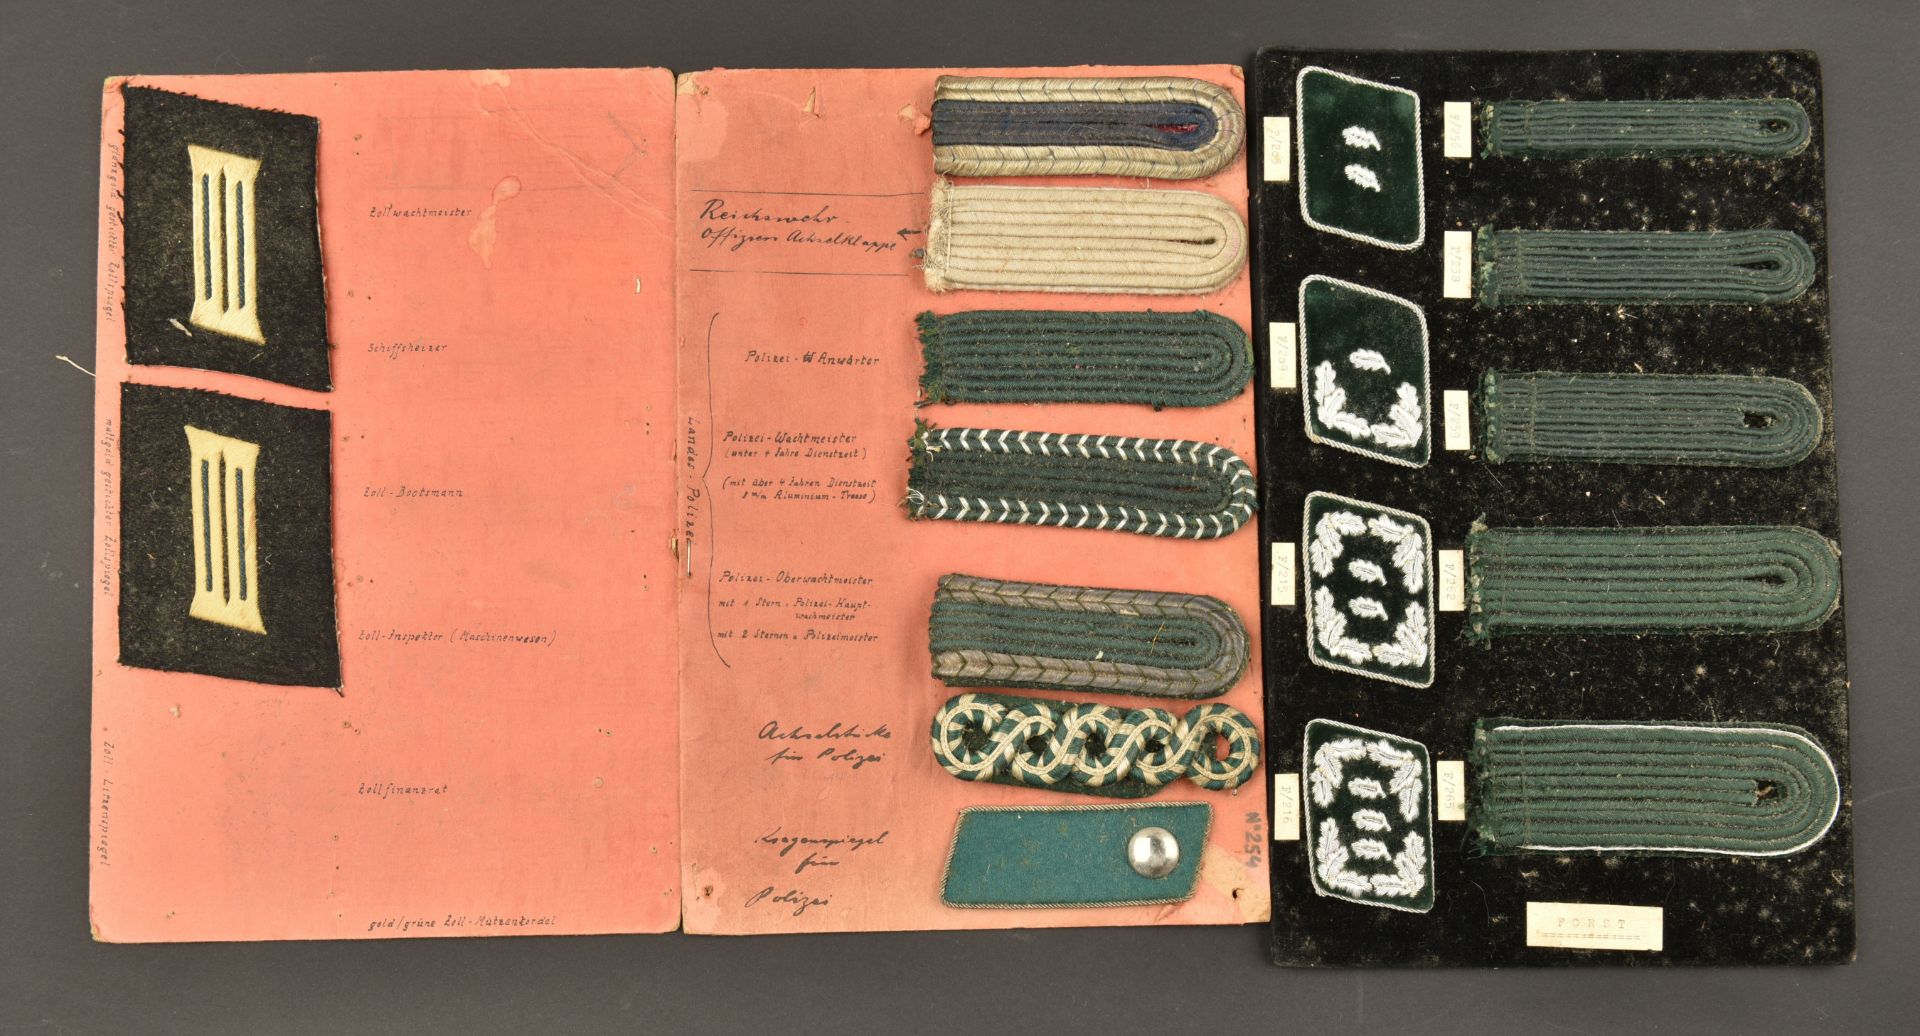 glanzgold gestickter Zollspiegel
mattgold gestickter Zollspiegel
Zoll - Litzenspiegel
Zollwachtmeister
Schiffsheizer
Zoll - Bootsmann
Zoll - Inspektor (Maschinenwesen)
Zollfinanzrat
gold/grüne Zoll - Mützenkordel
Reichswehr
Offiziers Achselklappe
Landes - Polizei
Polizei - Anwärter
Polizei - Wachtmeister
(unter 4 Jahre Dienstzeit)
(mit über 4 Jahren Dienstzeit
8 m/m Aluminium - Tresse)
Polizei - Oberwachtmeister
mit 1 Stern = Polizei - Haupt-
wachmeister
mit 2 Sternen = Polizeimeister
Achselstücke
für Polizei
Kragenspiegel
für
Polizei
N°254
F/206
F/209
F/215
F/216
F/256
F/253
F/250
F/262
F/265
FORST